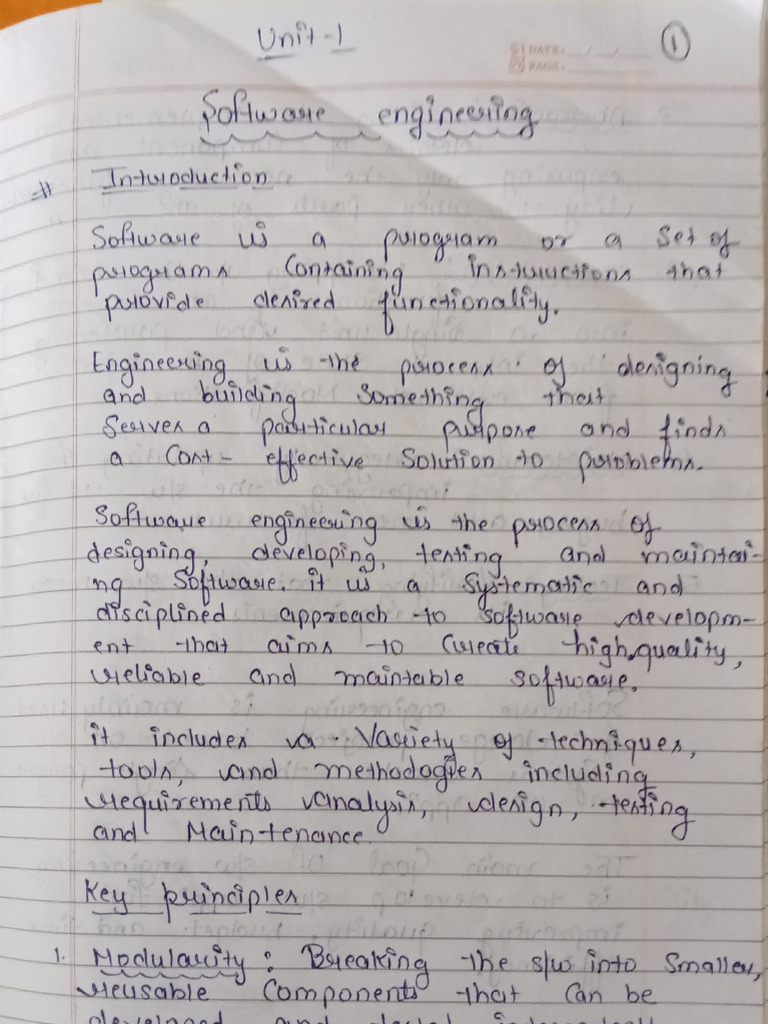 Unit-1
DATE:
PAGE:
1
Software engineering
⇒ Introduction
Software is a program or a set of
programs containing instructions that
provide desired functionality.
Engineering is the process of designing
and building something that
serves a particular purpose and finds
a cost-effective solution to problems.
Software engineering is the process of
designing, developing, testing and maintai-
ng software. it is a systematic and
disciplined approach to software developm-
ent that aims to create high quality,
reliable and maintable software.
it includes a variety of techniques,
tools, and methodogies including
requirements analysis, design, testing
and Maintenance.
Key principles
1. Modularity: Breaking the s/w into smaller,
reusable components that can be
developed and